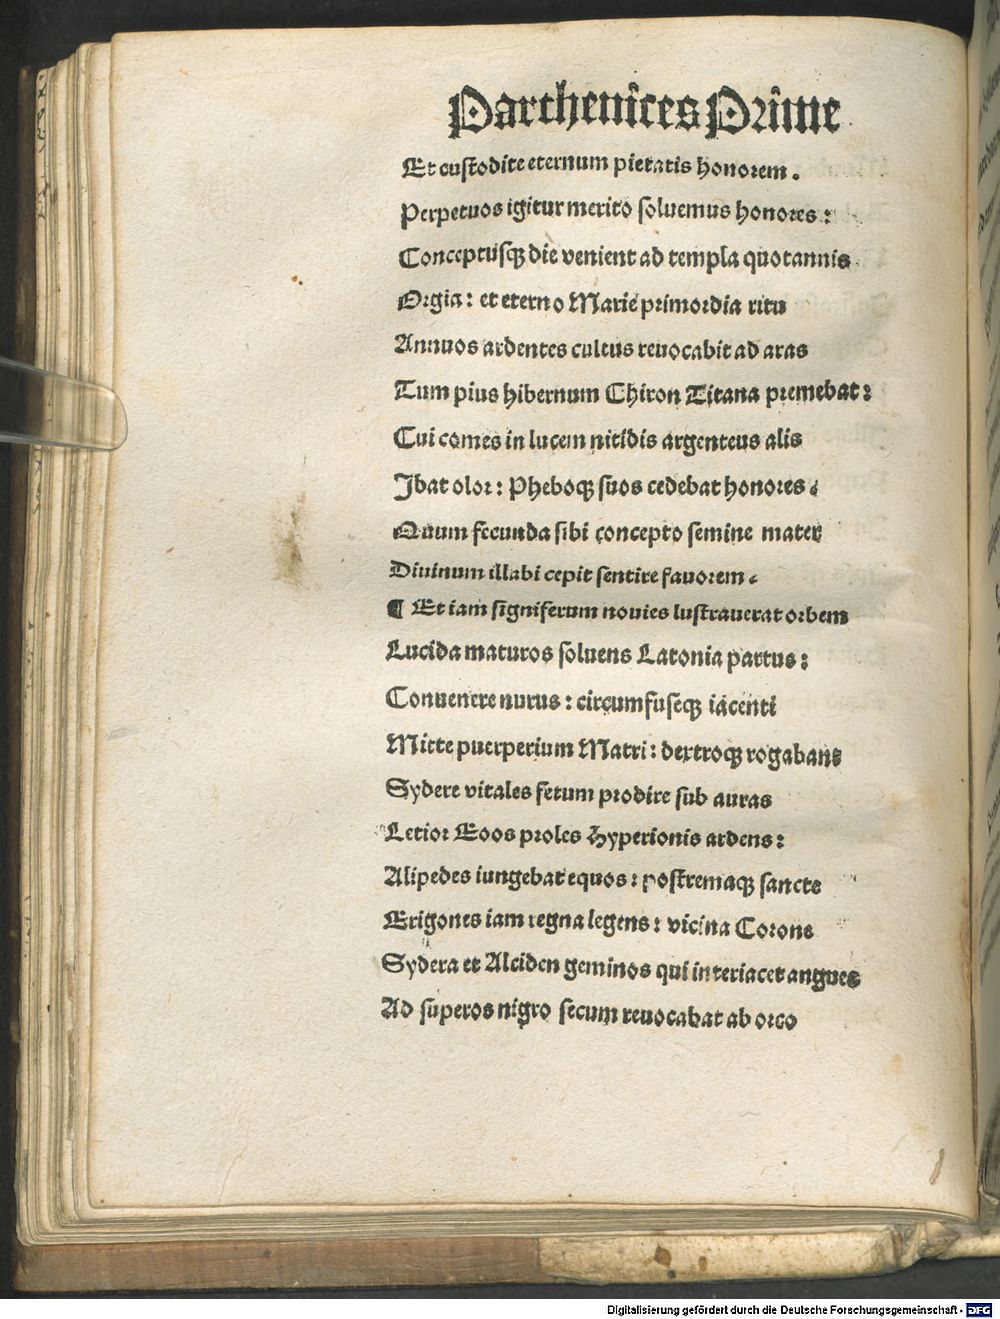 Parthenices Prime
Et custodite eternum pietatis honorem.
Perpetuos igitur merito soluemus honores:
Conceptusqꝫ die venient ad templa quotannis
Orgia: et eterno Marie primordia ritu
Annuos ardentes cultus reuocabit ad aras
Tum pius hibernum Chiron Titana premebat:
Cui comes in lucem nitidis argenteus alis
Jbat olor: Pheboqꝫ suos cedebat honores.
Quum fecunda sibi concepto semine mater
Diuinum illabi cepit sentire fauorem.
¶ Et iam signiferum nouies lustrauerat orbem
Lucida maturos soluens Latonia partus:
Conuenere nurus: circumfuseqꝫ iacenti
Mitte puerperium Matri: dextroqꝫ rogabant
Sydere vitales fetum prodire sub auras
Letior Eoos proles Hyperionis ardens:
Alipedes iungebat equos: postremaqꝫ sancte
Erigones iam regna legens: vicina Corone
Sydera et Alciden geminos qui interiacet angues
Ad superos nigro secum reuocabat ab orco
Digitalisierung gefördert durch die Deutsche Forschungsgemeinschaft - DFG